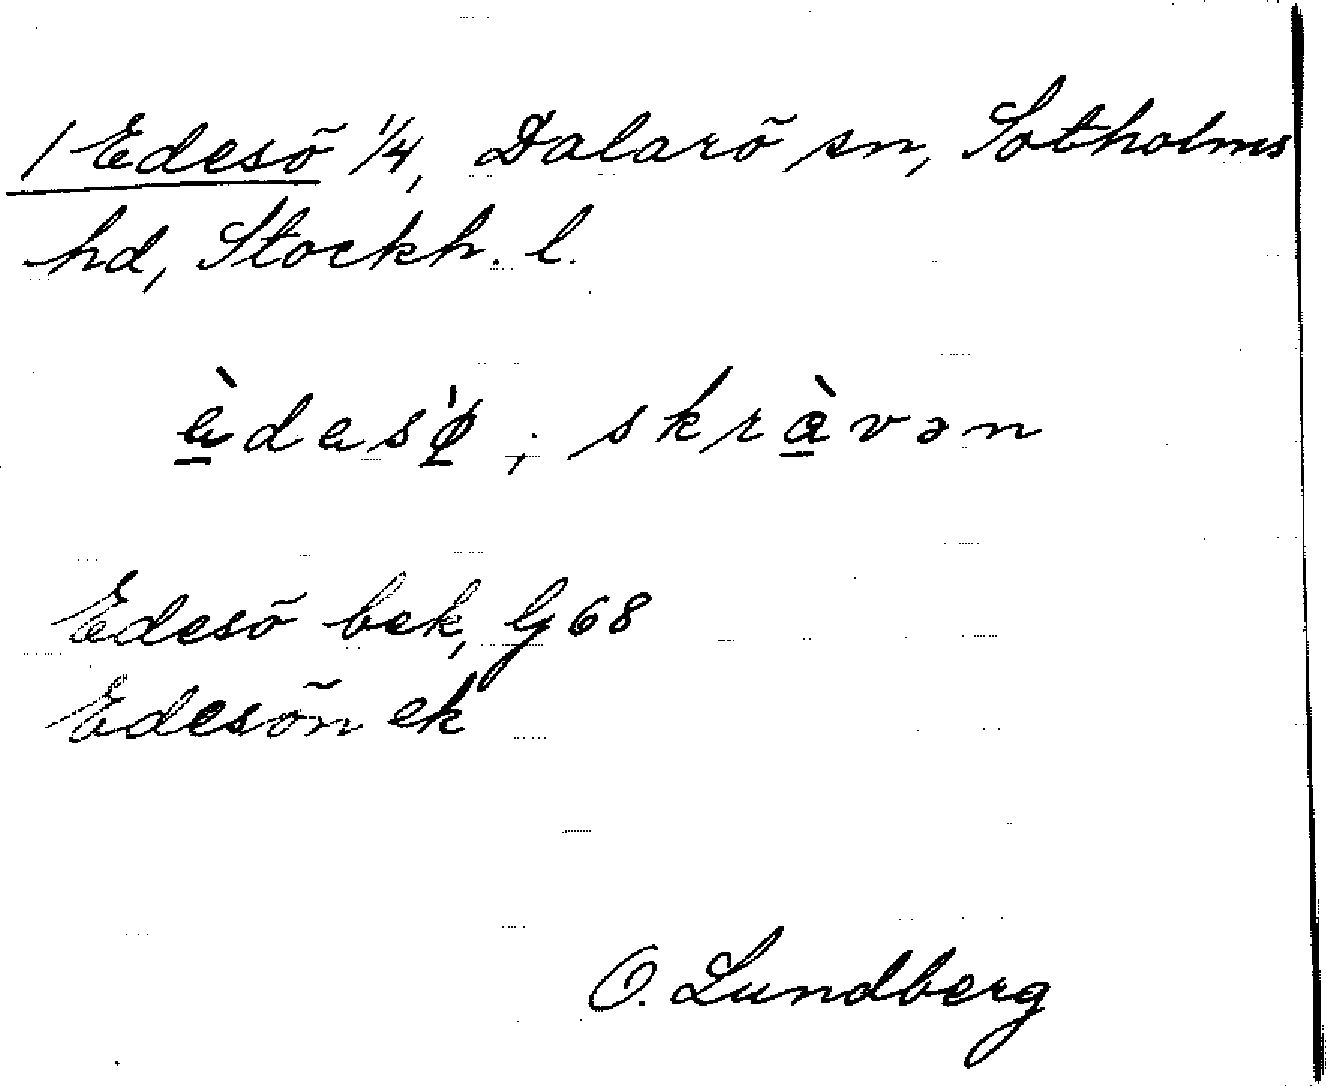 / Edesö 1/4, Dalarö sn, Sotholms
hd, Stockh. l.
è̱des'ø̱, skrà̱vən
Edesö bek, G 68
Edesön ek
O. Lundberg